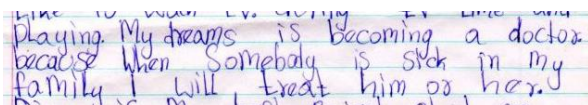 playing. My dreams is becoming a doctor
because when Somebody is sick in my
family I will treat him or her.